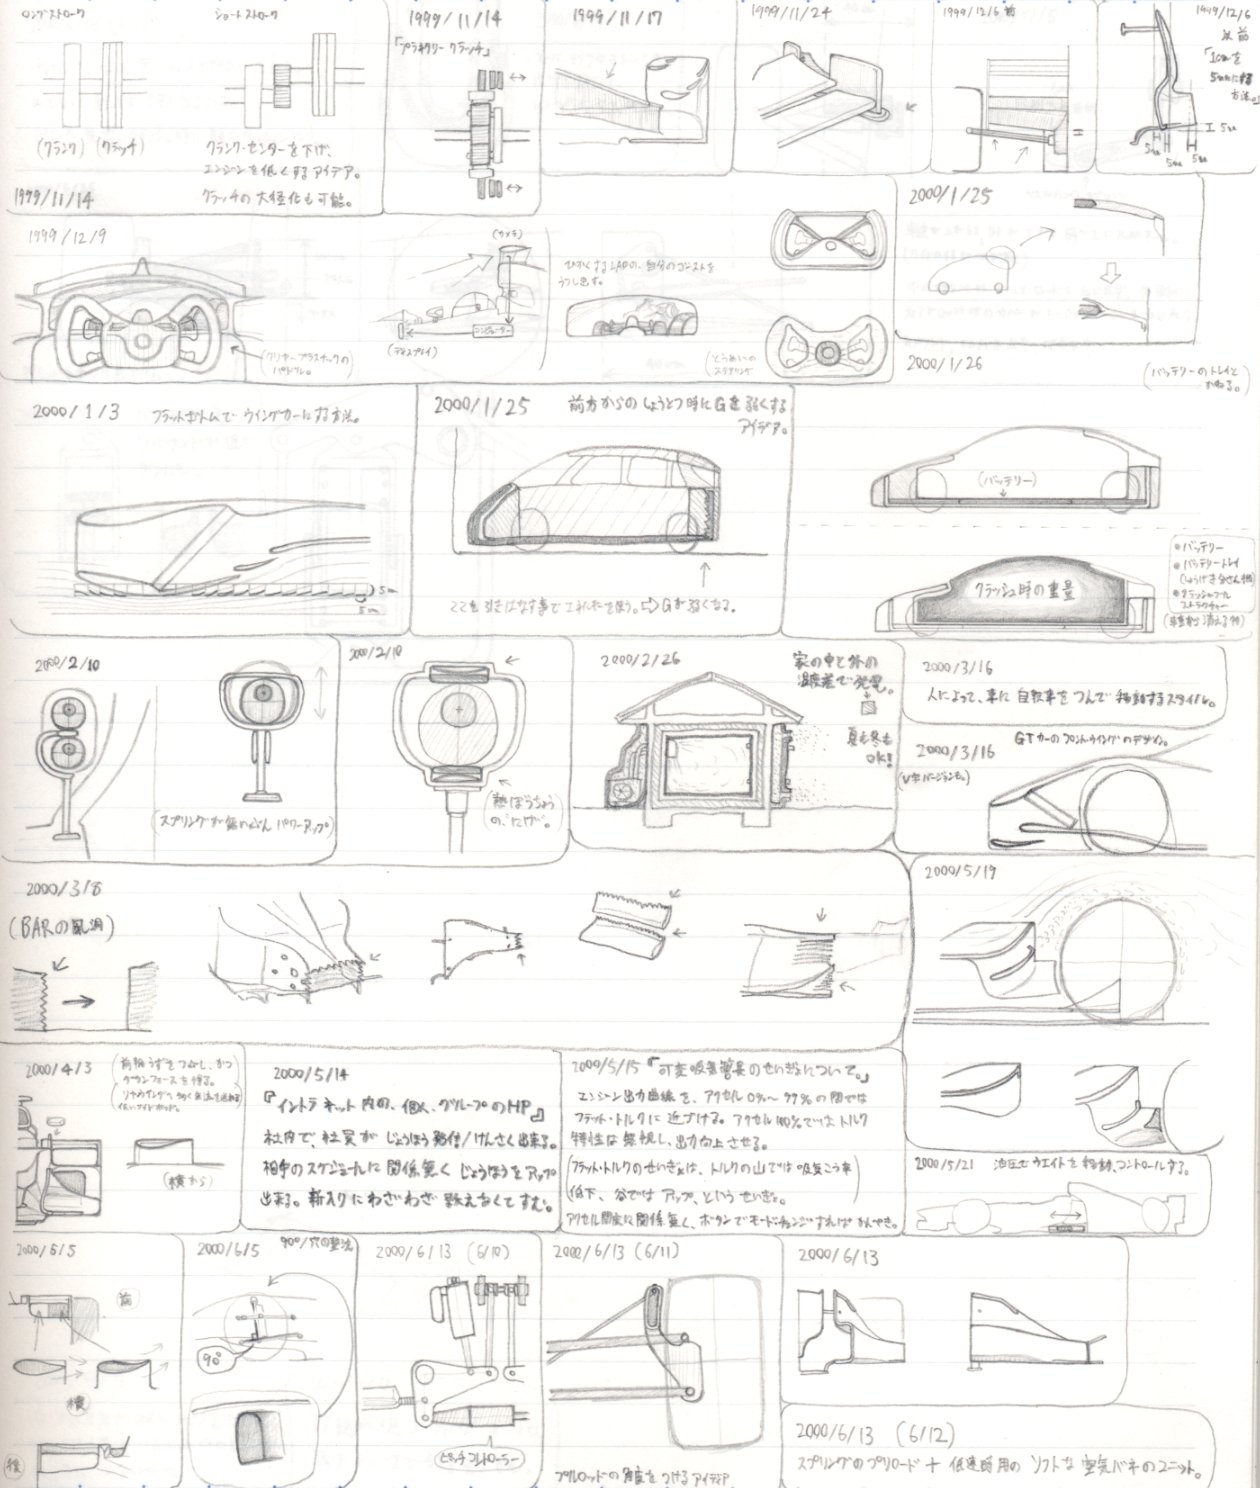 ロングストローク
ショートストローク
(クランク) (クラッチ)
クランク・センターを下げ、
エンジンを低くするアイデア。
クラッチの大径化も可能。
1999/11/14
1999/11/14
「プラネタリークラッチ」
1999/11/17
1999/11/24
1999/12/6 前
1999/12/6
以前
「1cmを
5mmにする
方法。」
5mm
5mm
5mm
5mm
1999/12/9
(クリヤープラスチックの
パドル。)
(カメラ)
コンピューター
(ディスプレイ)
自分のゴーストを
うつし出す。
(とうめいの
ステアリング
2000/1/25
2000/1/26
(バッテリーのトレイと
かねる。)
2000/1/3 フラットボトムでウイングカーにする方法。
5mm
5mm
2000/1/25 前方からのしょうとつ時にGを弱くする
アイデア。
ここを引きはなす事でエネルギーを使う。⇨Gが弱くなる。
(バッテリー)
クラッシュ時の重量
•バッテリー
•バッテリートレイ
•クラッシャブル
ストラクチャー
2000/2/10
(スプリングが無いぶんパワーアップ)
2000/2/10
(熱ぼうちょう
の、にげ。)
2000/2/26
家の中と外の
温度差で発電。
夏も冬も
OK!
2000/3/16
人によって、車に自転車をつんで移動するスタイル。
2000/3/16
GTカーのフロントウイングのデザイン。
(V字バージョンも。)
2000/3/8
(BARの風洞)
2000/5/19
2000/4/3
(前輪うずをつぶし、かつ
ダウンフォースを得る。
(横から)
2000/5/14
『イントラネット内の、個人、グループのHP』
社内で、社員がじょうほう発信/けんさく出来る。
相手のスケジュールに関係無くじょうほうをアップ
出来る。新入りにわざわざ教えなくてすむ。
2000/5/15『可変吸気管長のせいぎょについて。』
エンジン出力曲線を、アクセル0%～99%の間では
フラット・トルクに近づける。アクセル100%ではトルク
特性は無視し、出力向上させる。
(フラット・トルクのせいぎょは、トルクの山では吸気こう率
低下、谷ではアップ、というせいぎょ。)
アクセル開度に関係無く、ボタンでモードチェンジすればかんぺき。
2000/5/21 油圧でウエイトを移動、コントロールする。
2000/5/5
前
横
後
2000/6/5
90°/穴の整流
90°
2000/6/13 (6/10)
ピッチコントローラー
2000/6/13 (6/11)
プルロッドの角度をつけるアイディア
2000/6/13
2000/6/13 (6/12)
スプリングのプリロード + 低速時用のソフトな空気バネのユニット。